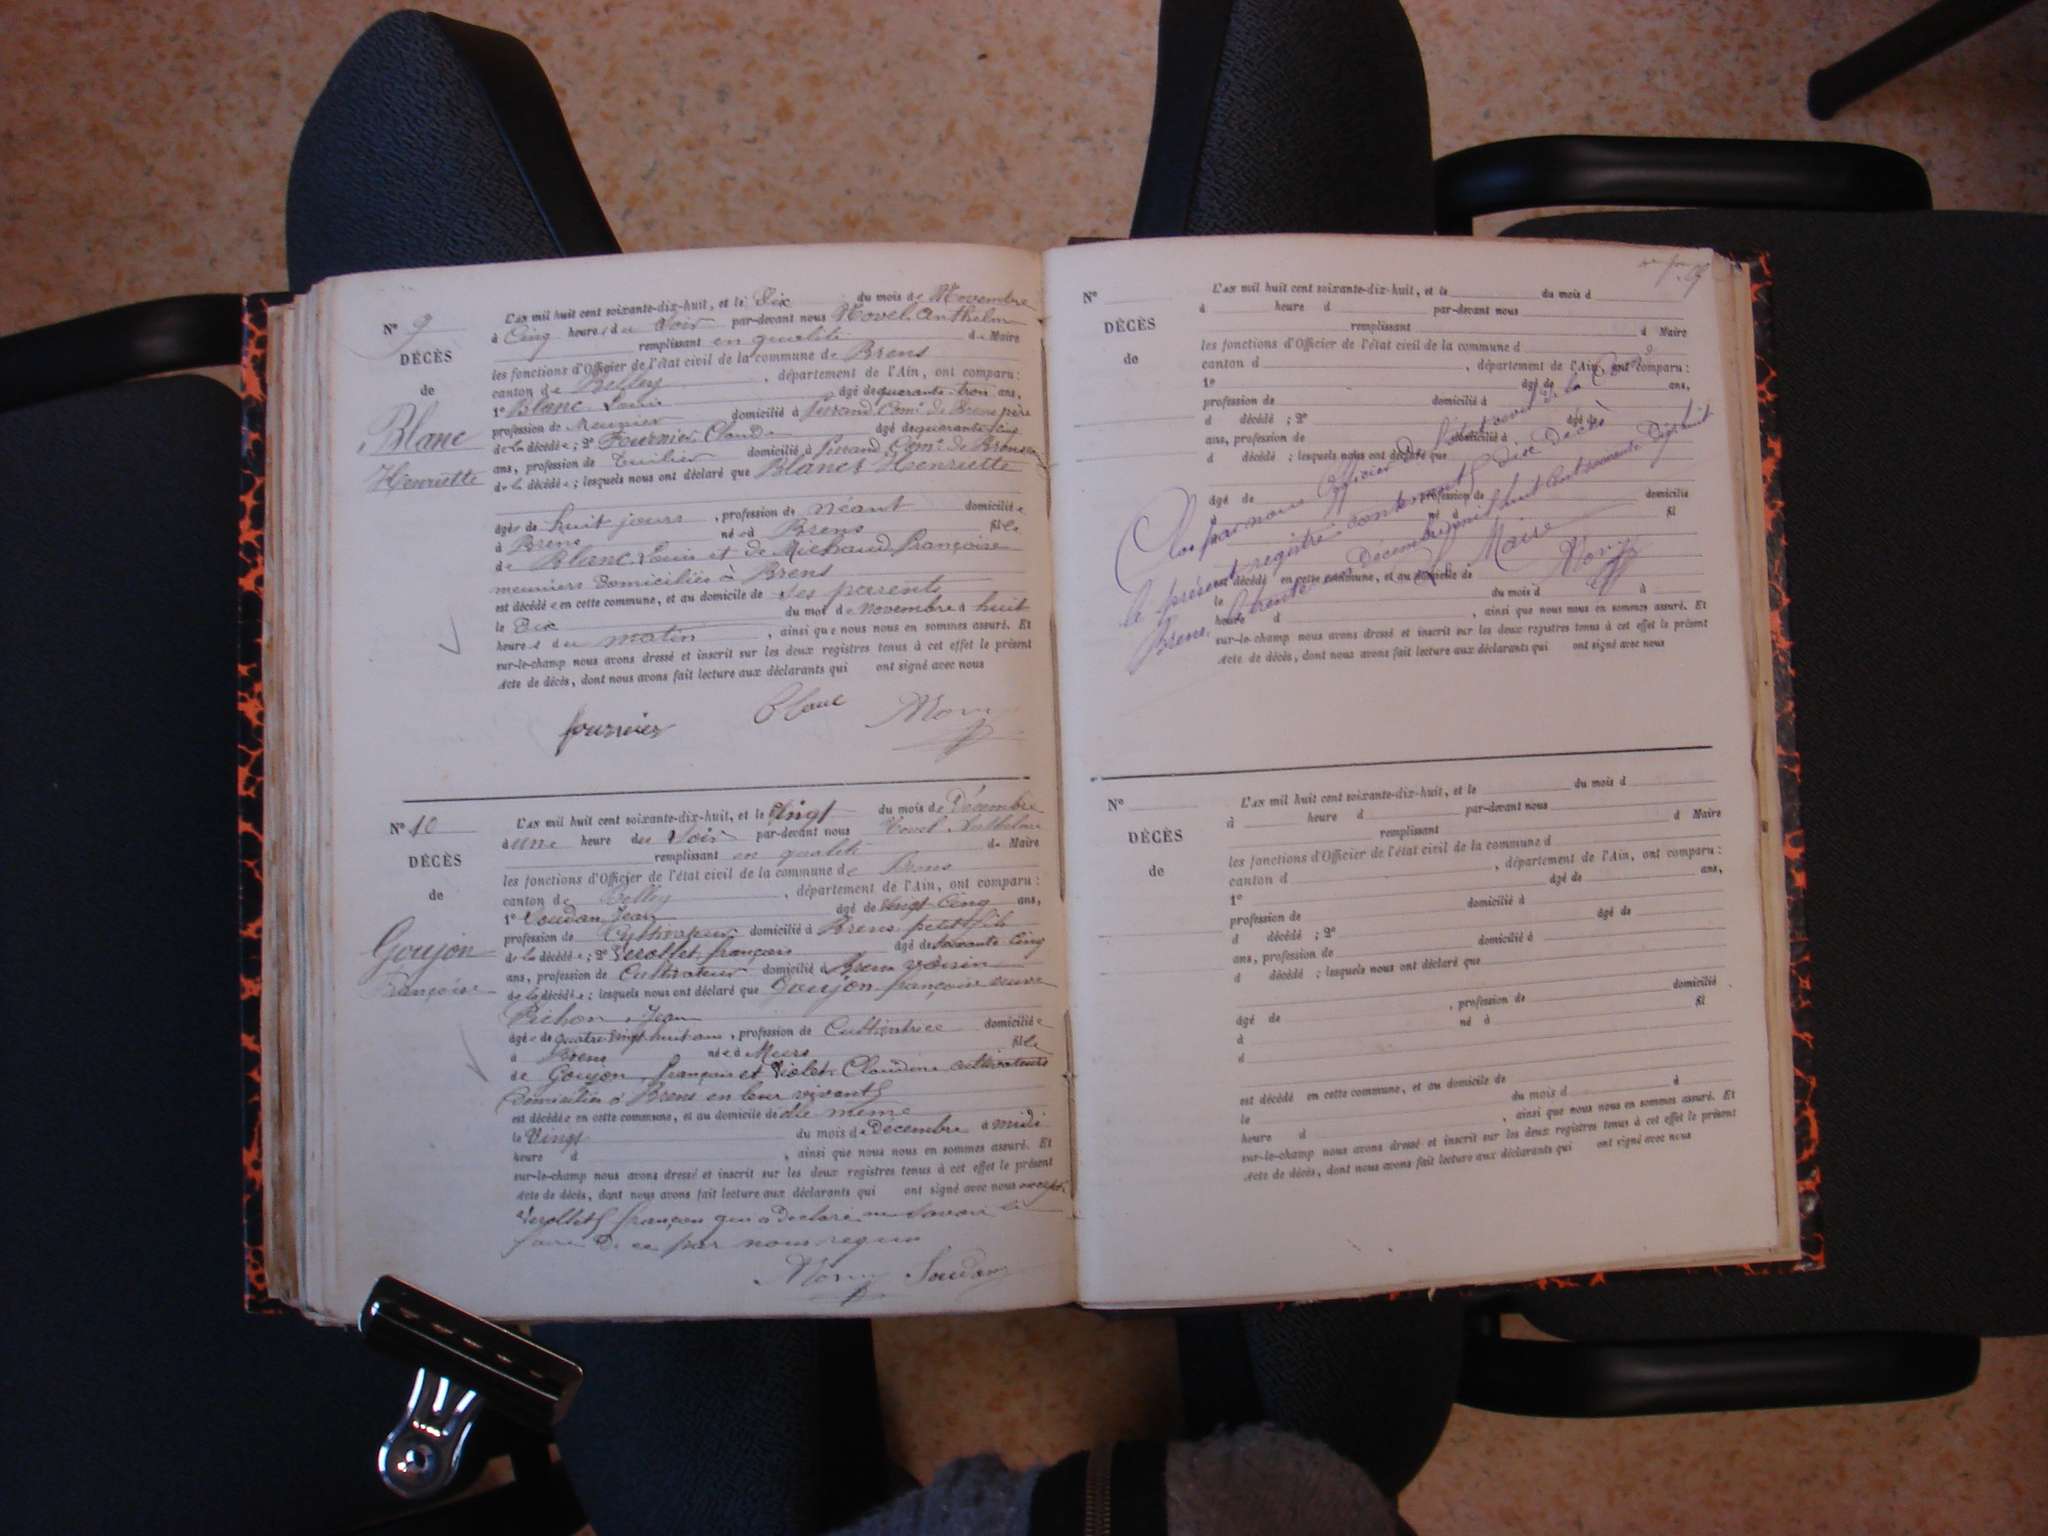 N° 9
DÉCÈS
de
Blanc
Henriette
L'AN mil huit cent soixante-dix-huit, et le Dix du mois de Novembre
à Cinq heures du Soir par-devant nous Hovel Anthelme
remplissant en qualité de Maire
les fonctions d'Officier de l'état civil de la commune de Brens
canton de Belley, département de l'Ain, ont comparu :
1° Blanc Louis âgé de quarante-trois ans,
profession de Meunier domicilié à Com.e de Brens père
de la décédée ; 2° Fournier Claude âgé de quarante cinq
ans, profession de Tuilier domicilié à Com.e de Brens
de la décédée ; lesquels nous ont déclaré que Blanc Henriette
âgée de huit jours, profession de néant domiciliée
à Brens née à Brens fille
de Blanc Louis et de Michaud Françoise
meuniers domiciliés à Brens
est décédée en cette commune, et au domicile de ses parents
le Dix du mois de Novembre à huit
heures du matin, ainsi que nous nous en sommes assuré. Et
sur-le-champ nous avons dressé et inscrit sur les deux registres tenus à cet effet le présent
Acte de décès, dont nous avons fait lecture aux déclarants qui ont signé avec nous
fournier Blanc
N° 10
DÉCÈS
de
Goujon
Françoise
L'AN mil huit cent soixante-dix-huit, et le Vingt du mois de Décembre
à une heure du Soir par-devant nous Hovel Anthelme
remplissant en qualité de Maire
les fonctions d'Officier de l'état civil de la commune de Brens
canton de Belley, département de l'Ain, ont comparu :
1° Soudan Jean âgé de vingt cinq ans,
profession de Cultivateur domicilié à Brens petit fils
de la décédée ; 2° françois âgé de soixante cinq
ans, profession de Cultivateur domicilié à Brens voisin
de la décédée ; lesquels nous ont déclaré que Goujon françoise veuve
Pichon Jean
âgée de quatre vingt huit ans, profession de Cultivatrice domiciliée
à Brens née à fille
de Goujon françois et Violet Claudine cultivateurs
domiciliés à Brens en leur vivant
est décédée en cette commune, et au domicile de elle même
le Vingt du mois de Décembre à midi
heure d , ainsi que nous nous en sommes assuré. Et
sur-le-champ nous avons dressé et inscrit sur les deux registres tenus à cet effet le présent
Acte de décès, dont nous avons fait lecture aux déclarants qui ont signé avec nous excepté
françois qui a déclaré ne savoir le
faire de ce par nous requis
Soudan
N°
DÉCÈS
de
L'AN mil huit cent soixante-dix-huit, et le du mois d
à heure d par-devant nous
remplissant d Maire
les fonctions d'Officier de l'état civil de la commune d
canton d , département de l'Ain, ont comparu :
1° âgé de ans,
profession de domicilié à
d décédé ; 2° âgé de
ans, profession de domicilié à
d décédé ; lesquels nous ont déclaré que
âgé de profession de domicilié
né à fil
est décédé en cette commune, et au domicile de
le du mois d à
heure d , ainsi que nous nous en sommes assuré. Et
sur-le-champ nous avons dressé et inscrit sur les deux registres tenus à cet effet le présent
Acte de décès, dont nous avons fait lecture aux déclarants qui ont signé avec nous
Clos par nous Officier de l'état civil de la Com.e
le présent registre contenant dix Décès
Brens, le trente un Décembre mil huit cent soixante dix huit
Le Maire
N°
DÉCÈS
de
L'AN mil huit cent soixante-dix-huit, et le du mois d
à heure d par-devant nous
remplissant d Maire
les fonctions d'Officier de l'état civil de la commune d
canton d , département de l'Ain, ont comparu :
1° âgé de ans,
profession de domicilié à
d décédé ; 2° âgé de
ans, profession de domicilié à
d décédé ; lesquels nous ont déclaré que
âgé de , profession de domicilié
à né à fil
d
est décédé en cette commune, et au domicile de
le du mois d à
heure d , ainsi que nous nous en sommes assuré. Et
sur-le-champ nous avons dressé et inscrit sur les deux registres tenus à cet effet le présent
Acte de décès, dont nous avons fait lecture aux déclarants qui ont signé avec nous